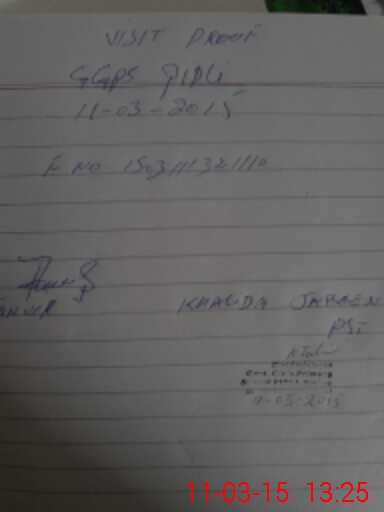 VISIT PROOF
GGPS PIPLi
11-03-2015
F NO. 1503111321110
TANVIR
KHALIDA JABEEN
PST
11-03-2015
11-03-15 13:25